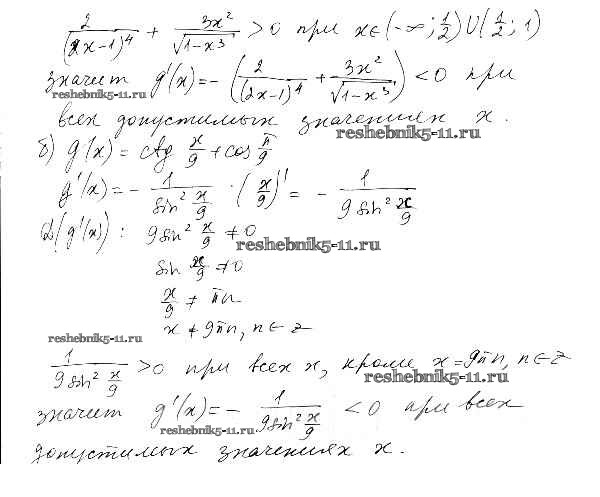 2/(2x-1)⁴ + 3x²/√(1-x³) > 0 при x∈(-∞; 1/2)∪(1/2; 1)
значит g'(x) = -(2/(2x-1)⁴ + 3x²/√(1-x³)) < 0 при
reshebnik5-11.ru
всех допустимых значениях x.
reshebnik5-11.ru
б) g(x) = ctg x/9 + cos π/9
g'(x) = - 1/(sin² x/9) · (x/9)' = - 1/(9 sin² x/9)
D(g'(x)): 9 sin² x/9 ≠ 0
reshebnik5-11.ru
sin x/9 ≠ 0
x/9 ≠ πn
x ≠ 9πn, n∈z
reshebnik5-11.ru
1/(9 sin² x/9) > 0 при всех x, кроме x = 9πn, n∈z
reshebnik5-11.ru
значит g'(x) = - 1/(9 sin² x/9) < 0 при всех
reshebnik5-11.ru
допустимых значениях x.